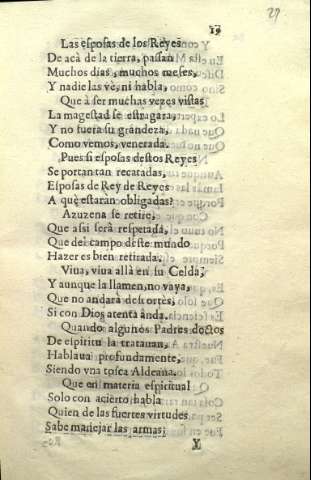 27
19
Las esposas de los Reyes
De acà de la tierra, passan
Muchos dias, muchos meses,
Y nadie las vè, ni habla,
Que à ser muchas vezes vistas
La magestad se estragara,
Y no fuera su grandeza,
Como vemos, venerada.
Pues si esposas destos Reyes
Se portan tan recatadas,
Esposas de Rey de Reyes
A què estaràn obligadas?
Azuzena se retire,
Que assi serà respetada,
Que del campo deste mundo
Hazer es bien retirada.
Viua, viua allà en su Celda,
Y aunque la llamen, no vaya,
Que no andarà descortès,
Si con Dios atenta ànda.
Quando algunos Padres doctos
De espiritu la tratauan,
Hablaua profundamente,
Siendo vna tosca Aldeana.
Que en materia espiritual
Solo con acierto habla
Quien de las fuertes virtudes
Sabe manejar las armas;
Y